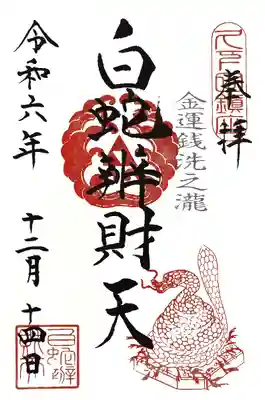 奉拝
金運銭洗之瀧
白蛇辨財天
令和六年
十二月十四日